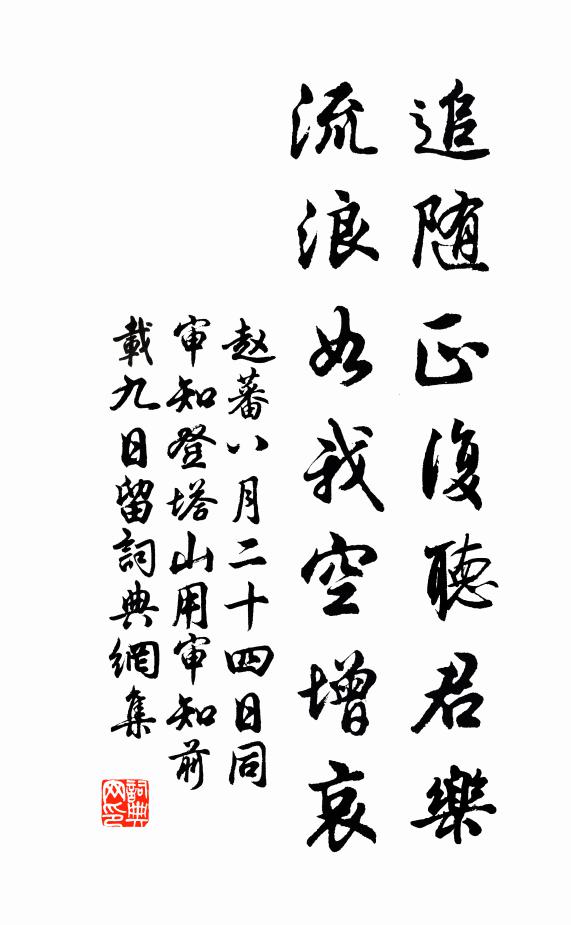 追随正復聽君樂
流浪如我空增哀
赵蕃八月二十四日同
审知登塔山用审知前
載九日留詞典網集
詞典
网印